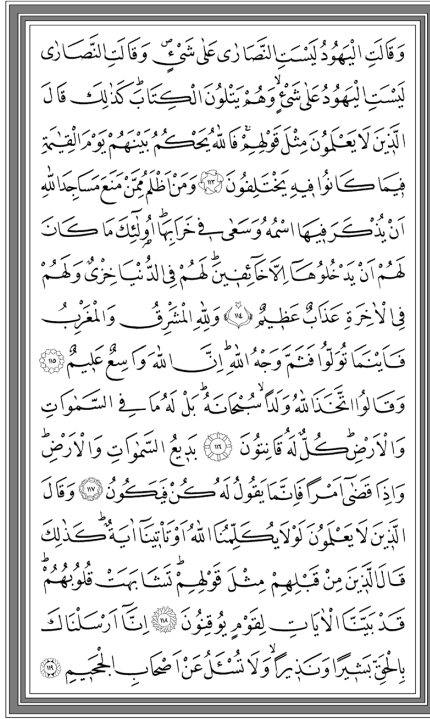 وَقَالَتِ الْيَهُودُ لَيْسَتِ النَّصَارٰى عَلٰى شَيْءٍۖ وَقَالَتِ النَّصَارٰى
لَيْسَتِ الْيَهُودُ عَلٰى شَيْءٍۙ وَهُمْ يَتْلُونَ الْكِتَابَۜ كَذٰلِكَ قَالَ
الَّذِينَ لَا يَعْلَمُونَ مِثْلَ قَوْلِهِمْۚ فَاللّٰهُ يَحْكُمُ بَيْنَهُمْ يَوْمَ الْقِيٰمَةِ
فِيمَا كَانُوا فِيهِ يَخْتَلِفُونَ ﴿١١٣﴾ وَمَنْ اَظْلَمُ مِمَّنْ مَنَعَ مَسَاجِدَ اللّٰهِ
اَنْ يُذْكَرَ فِيهَا اسْمُهُ وَسَعٰى فِي خَرَابِهَاۜ اُولٰٓئِكَ مَا كَانَ
لَهُمْ اَنْ يَدْخُلُوهَٓا اِلَّا خَٓائِفِينَۜ لَهُمْ فِي الدُّنْيَا خِزْيٌ وَلَهُمْ
فِي الْاٰخِرَةِ عَذَابٌ عَظِيمٌ ﴿١١٤﴾ وَلِلّٰهِ الْمَشْرِقُ وَالْمَغْرِبُ
فَاَيْنَمَا تُوَلُّوا فَثَمَّ وَجْهُ اللّٰهِۜ اِنَّ اللّٰهَ وَاسِعٌ عَلِيمٌ ﴿١١٥﴾
وَقَالُوا اتَّخَذَ اللّٰهُ وَلَدًاۙ سُبْحَانَهُۜ بَلْ لَهُ مَا فِي السَّمٰوَاتِ
وَالْاَرْضِۜ كُلٌّ لَهُ قَانِتُونَ ﴿١١٦﴾ بَدِيعُ السَّمٰوَاتِ وَالْاَرْضِۜ
وَاِذَا قَضٰٓى اَمْرًا فَاِنَّمَا يَقُولُ لَهُ كُنْ فَيَكُونُ ﴿١١٧﴾ وَقَالَ
الَّذِينَ لَا يَعْلَمُونَ لَوْلَا يُكَلِّمُنَا اللّٰهُ اَوْ تَأْتِينَٓا اٰيَةٌۜ كَذٰلِكَ
قَالَ الَّذِينَ مِنْ قَبْلِهِمْ مِثْلَ قَوْلِهِمْۜ تَشَابَهَتْ قُلُوبُهُمْۜ
قَدْ بَيَّنَّا الْاٰيَاتِ لِقَوْمٍ يُوقِنُونَ ﴿١١٨﴾ اِنَّٓا اَرْسَلْنَاكَ
بِالْحَقِّ بَشِيرًا وَنَذِيرًاۙ وَلَا تُسْـَٔلُ عَنْ اَصْحَابِ الْجَحِيمِ ﴿١١٩﴾